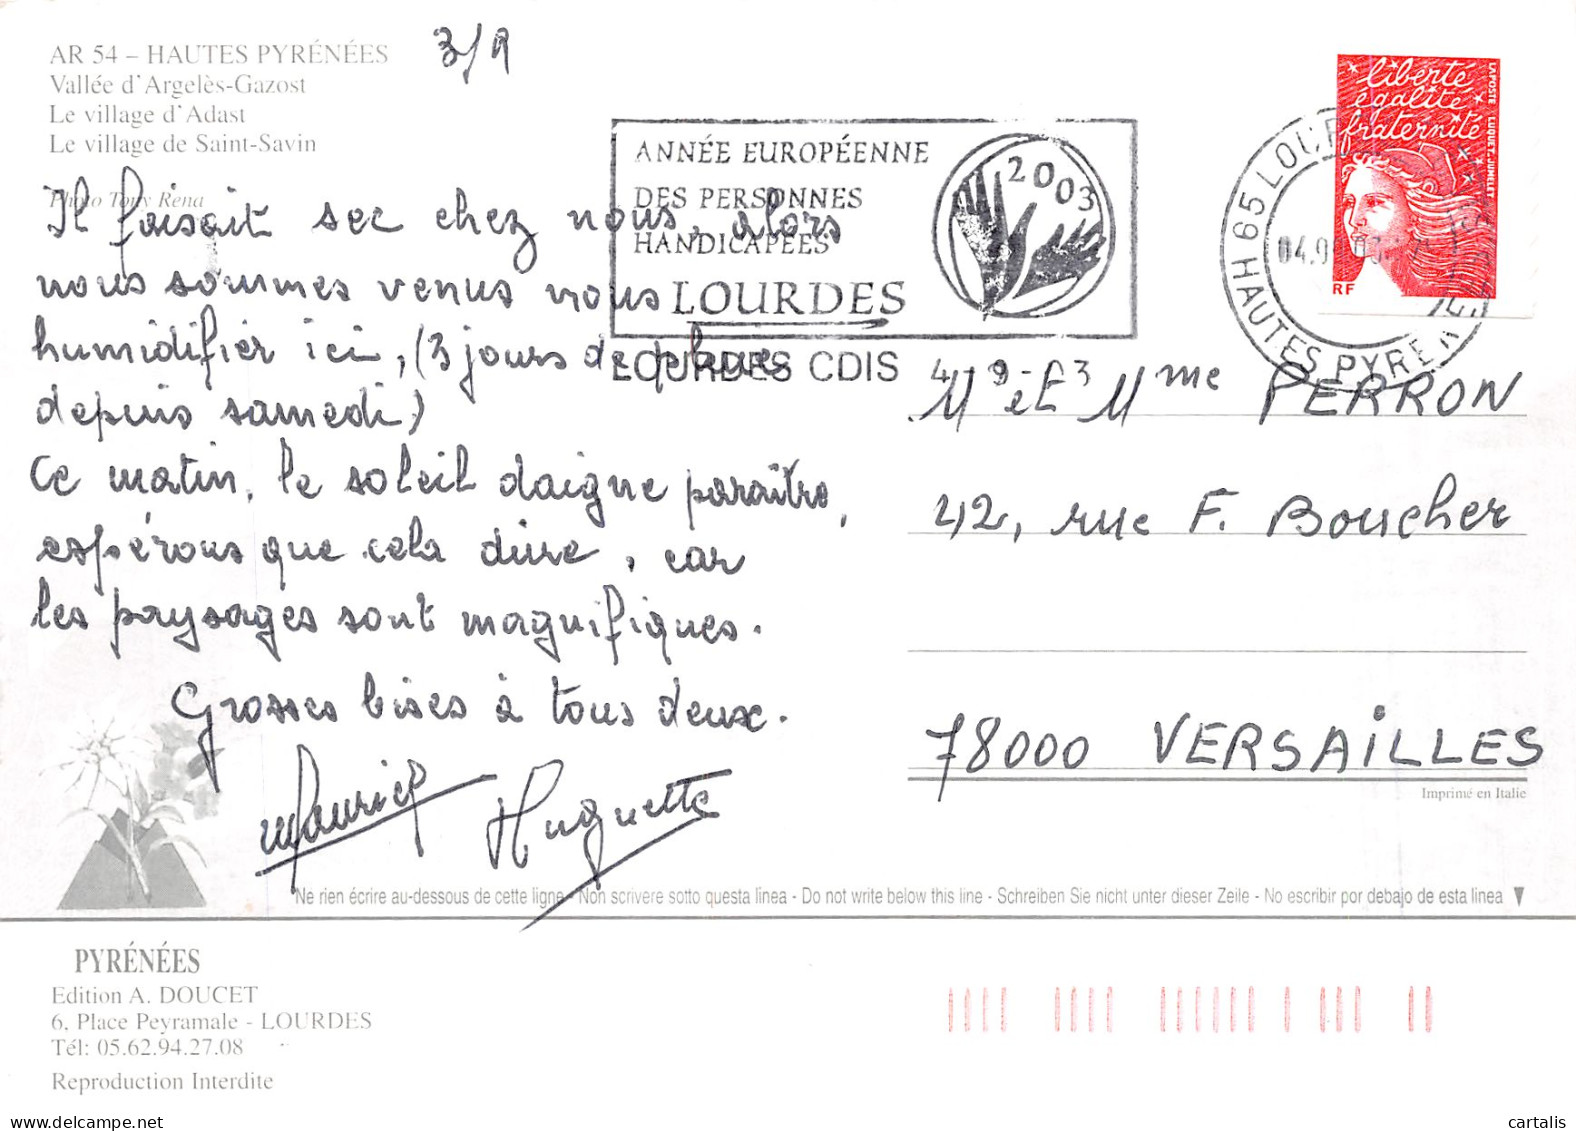 AR 54 – HAUTES PYRÉNÉES
Vallée d'Argelès-Gazost
Le village d'Adast
Le village de Saint-Savin
Photo Tony Rena
3/9
Il faisait sec chez nous, alors
nous sommes venus nous
humidifier ici, (3 jours de pluies
depuis samedi)
Ce matin, le soleil daigne paraître,
espérons que cela dure, car
les paysages sont magnifiques.
Grosses bises à tous deux.
Maurice
Huguette
ANNÉE EUROPÉENNE
DES PERSONNES
HANDICAPÉES
LOURDES
2003
LOURDES CDIS 4-9-03
65 LOURDES
HAUTES PYRENEES
liberté
égalité
fraternité
LA POSTE LUQUET-JUMELET
RF
M et Mme PERRON
42, rue F. Boucher
78000 VERSAILLES
Imprimé en Italie
Ne rien écrire au-dessous de cette ligne - Non scrivere sotto questa linea - Do not write below this line - Schreiben Sie nicht unter dieser Zeile - No escribir por debajo de esta linea
PYRÉNÉES
Edition A. DOUCET
6, Place Peyramale - LOURDES
Tél: 05.62.94.27.08
Reproduction Interdite
delcampe.net
cartalis